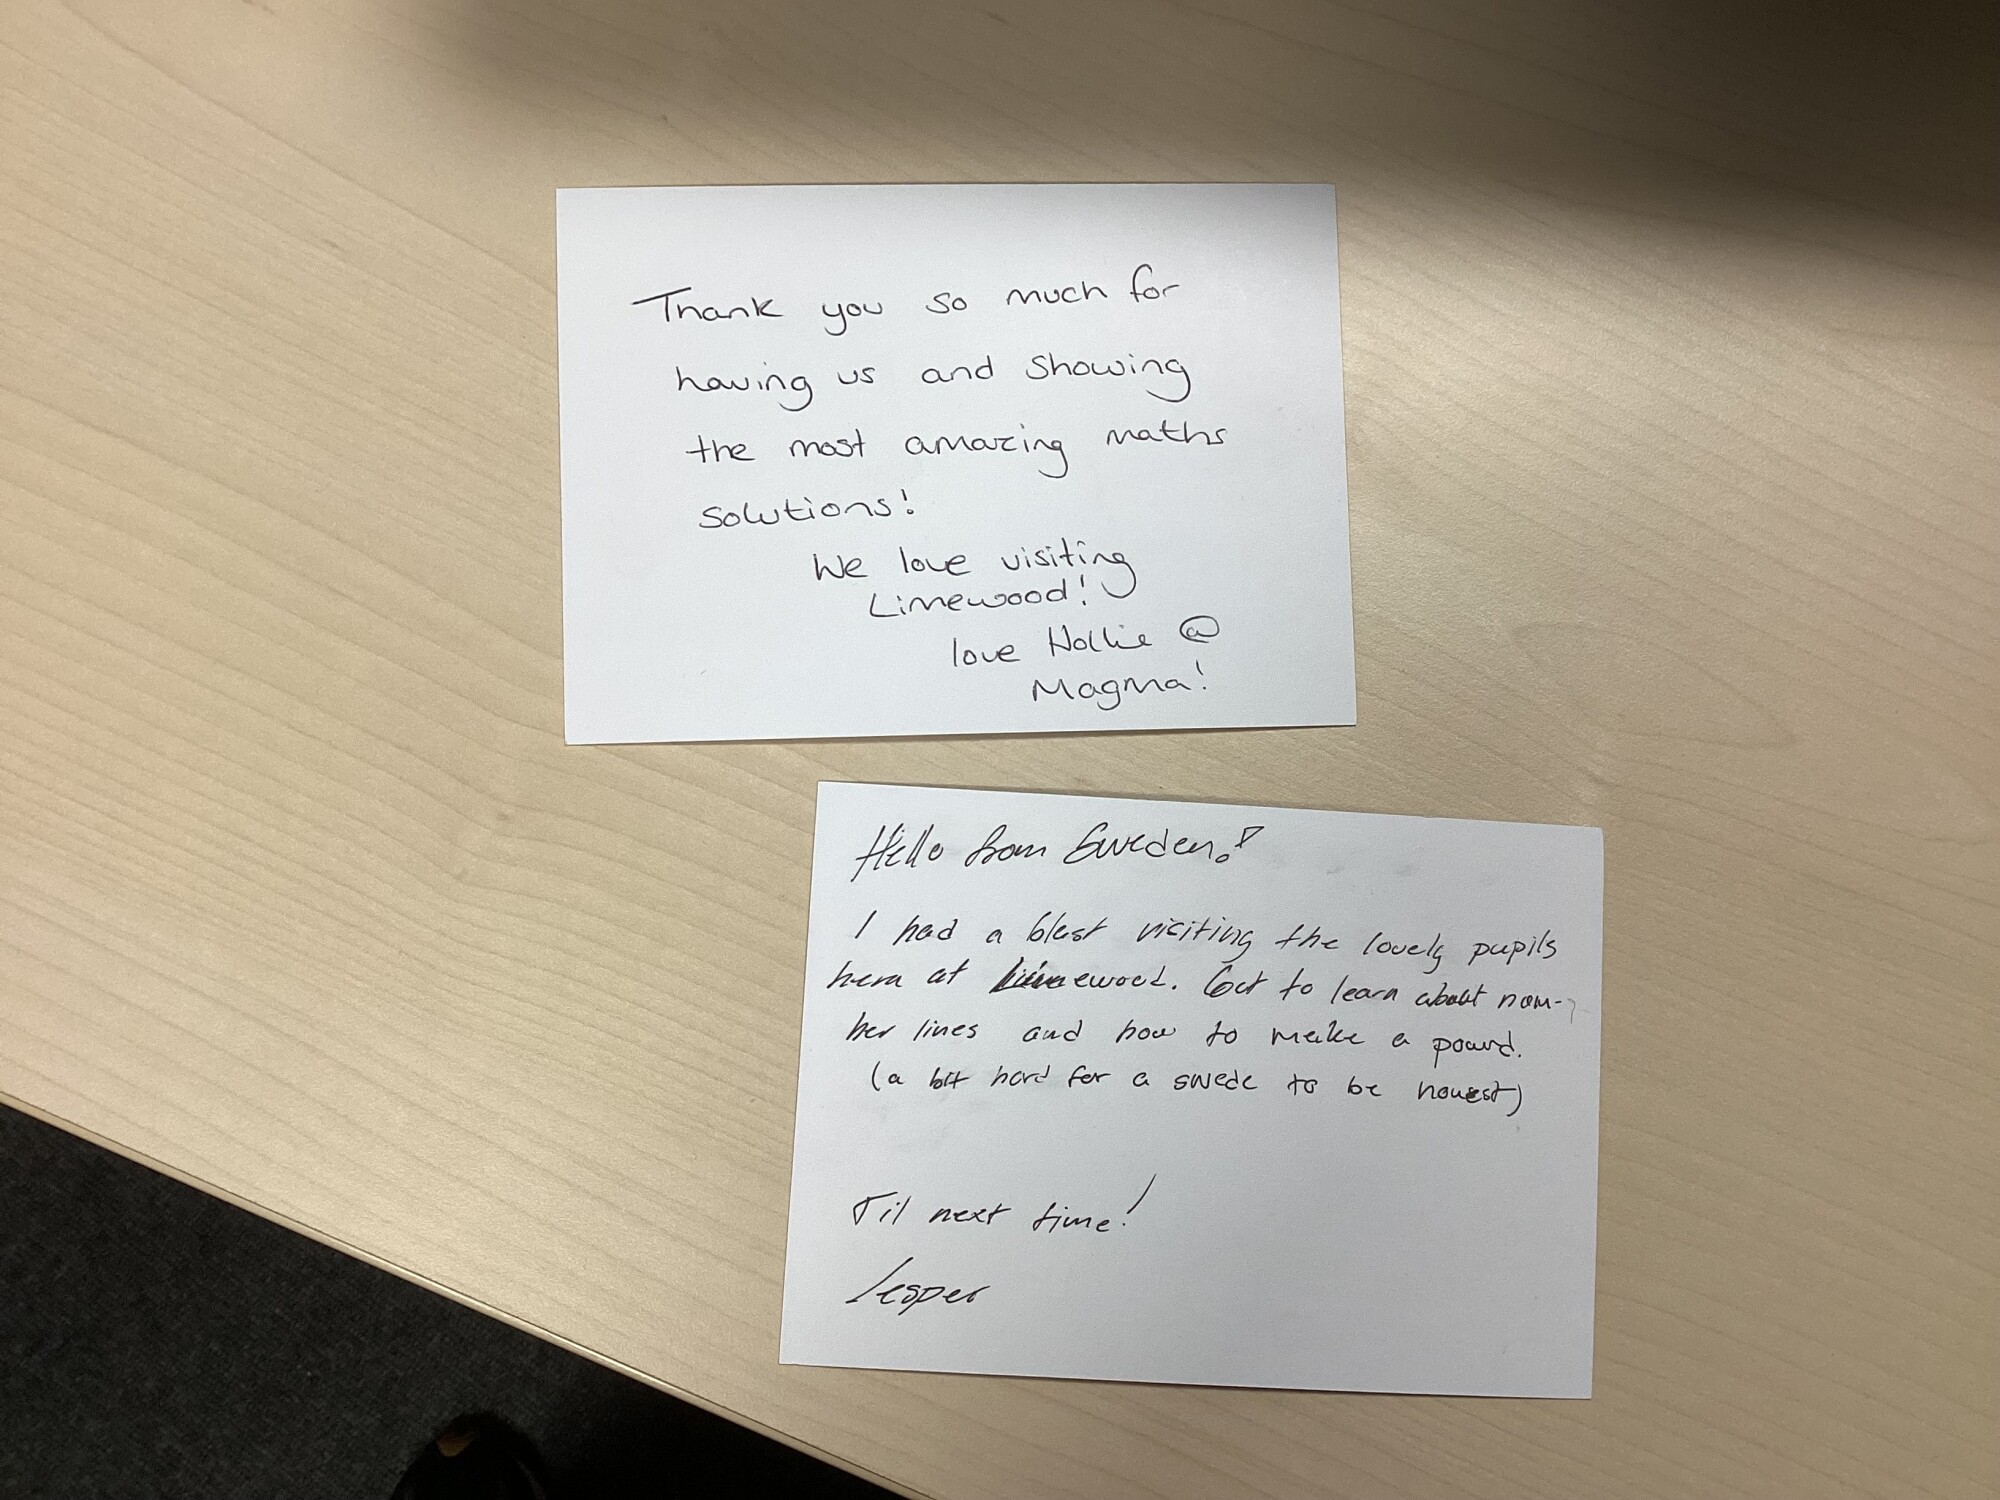 Thank you so much for
having us and showing
the most amazing maths
solutions!
We love visiting
Limewood!
love Hollie @
Magma!
Hello from Sweden!
I had a blast visiting the lovely pupils
here at Limewood. Got to learn about num-
ber lines and how to make a pound.
(a bit hard for a swede to be honest)
Til next time!
Jesper